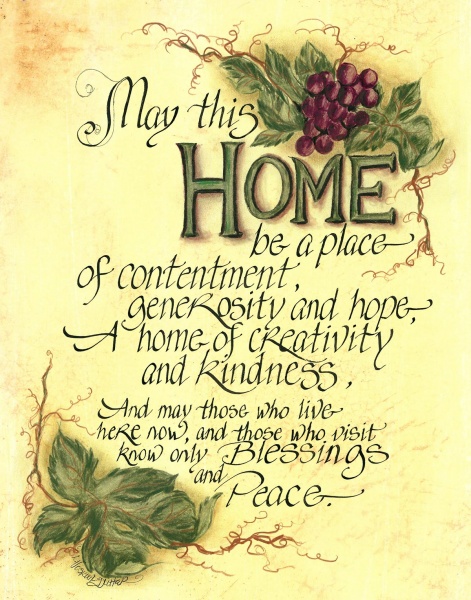 May this
HOME
be a place
of contentment,
generosity and hope,
A home of creativity
and kindness,
And may those who live
here now, and those who visit
know only Blessings
and
Peace.